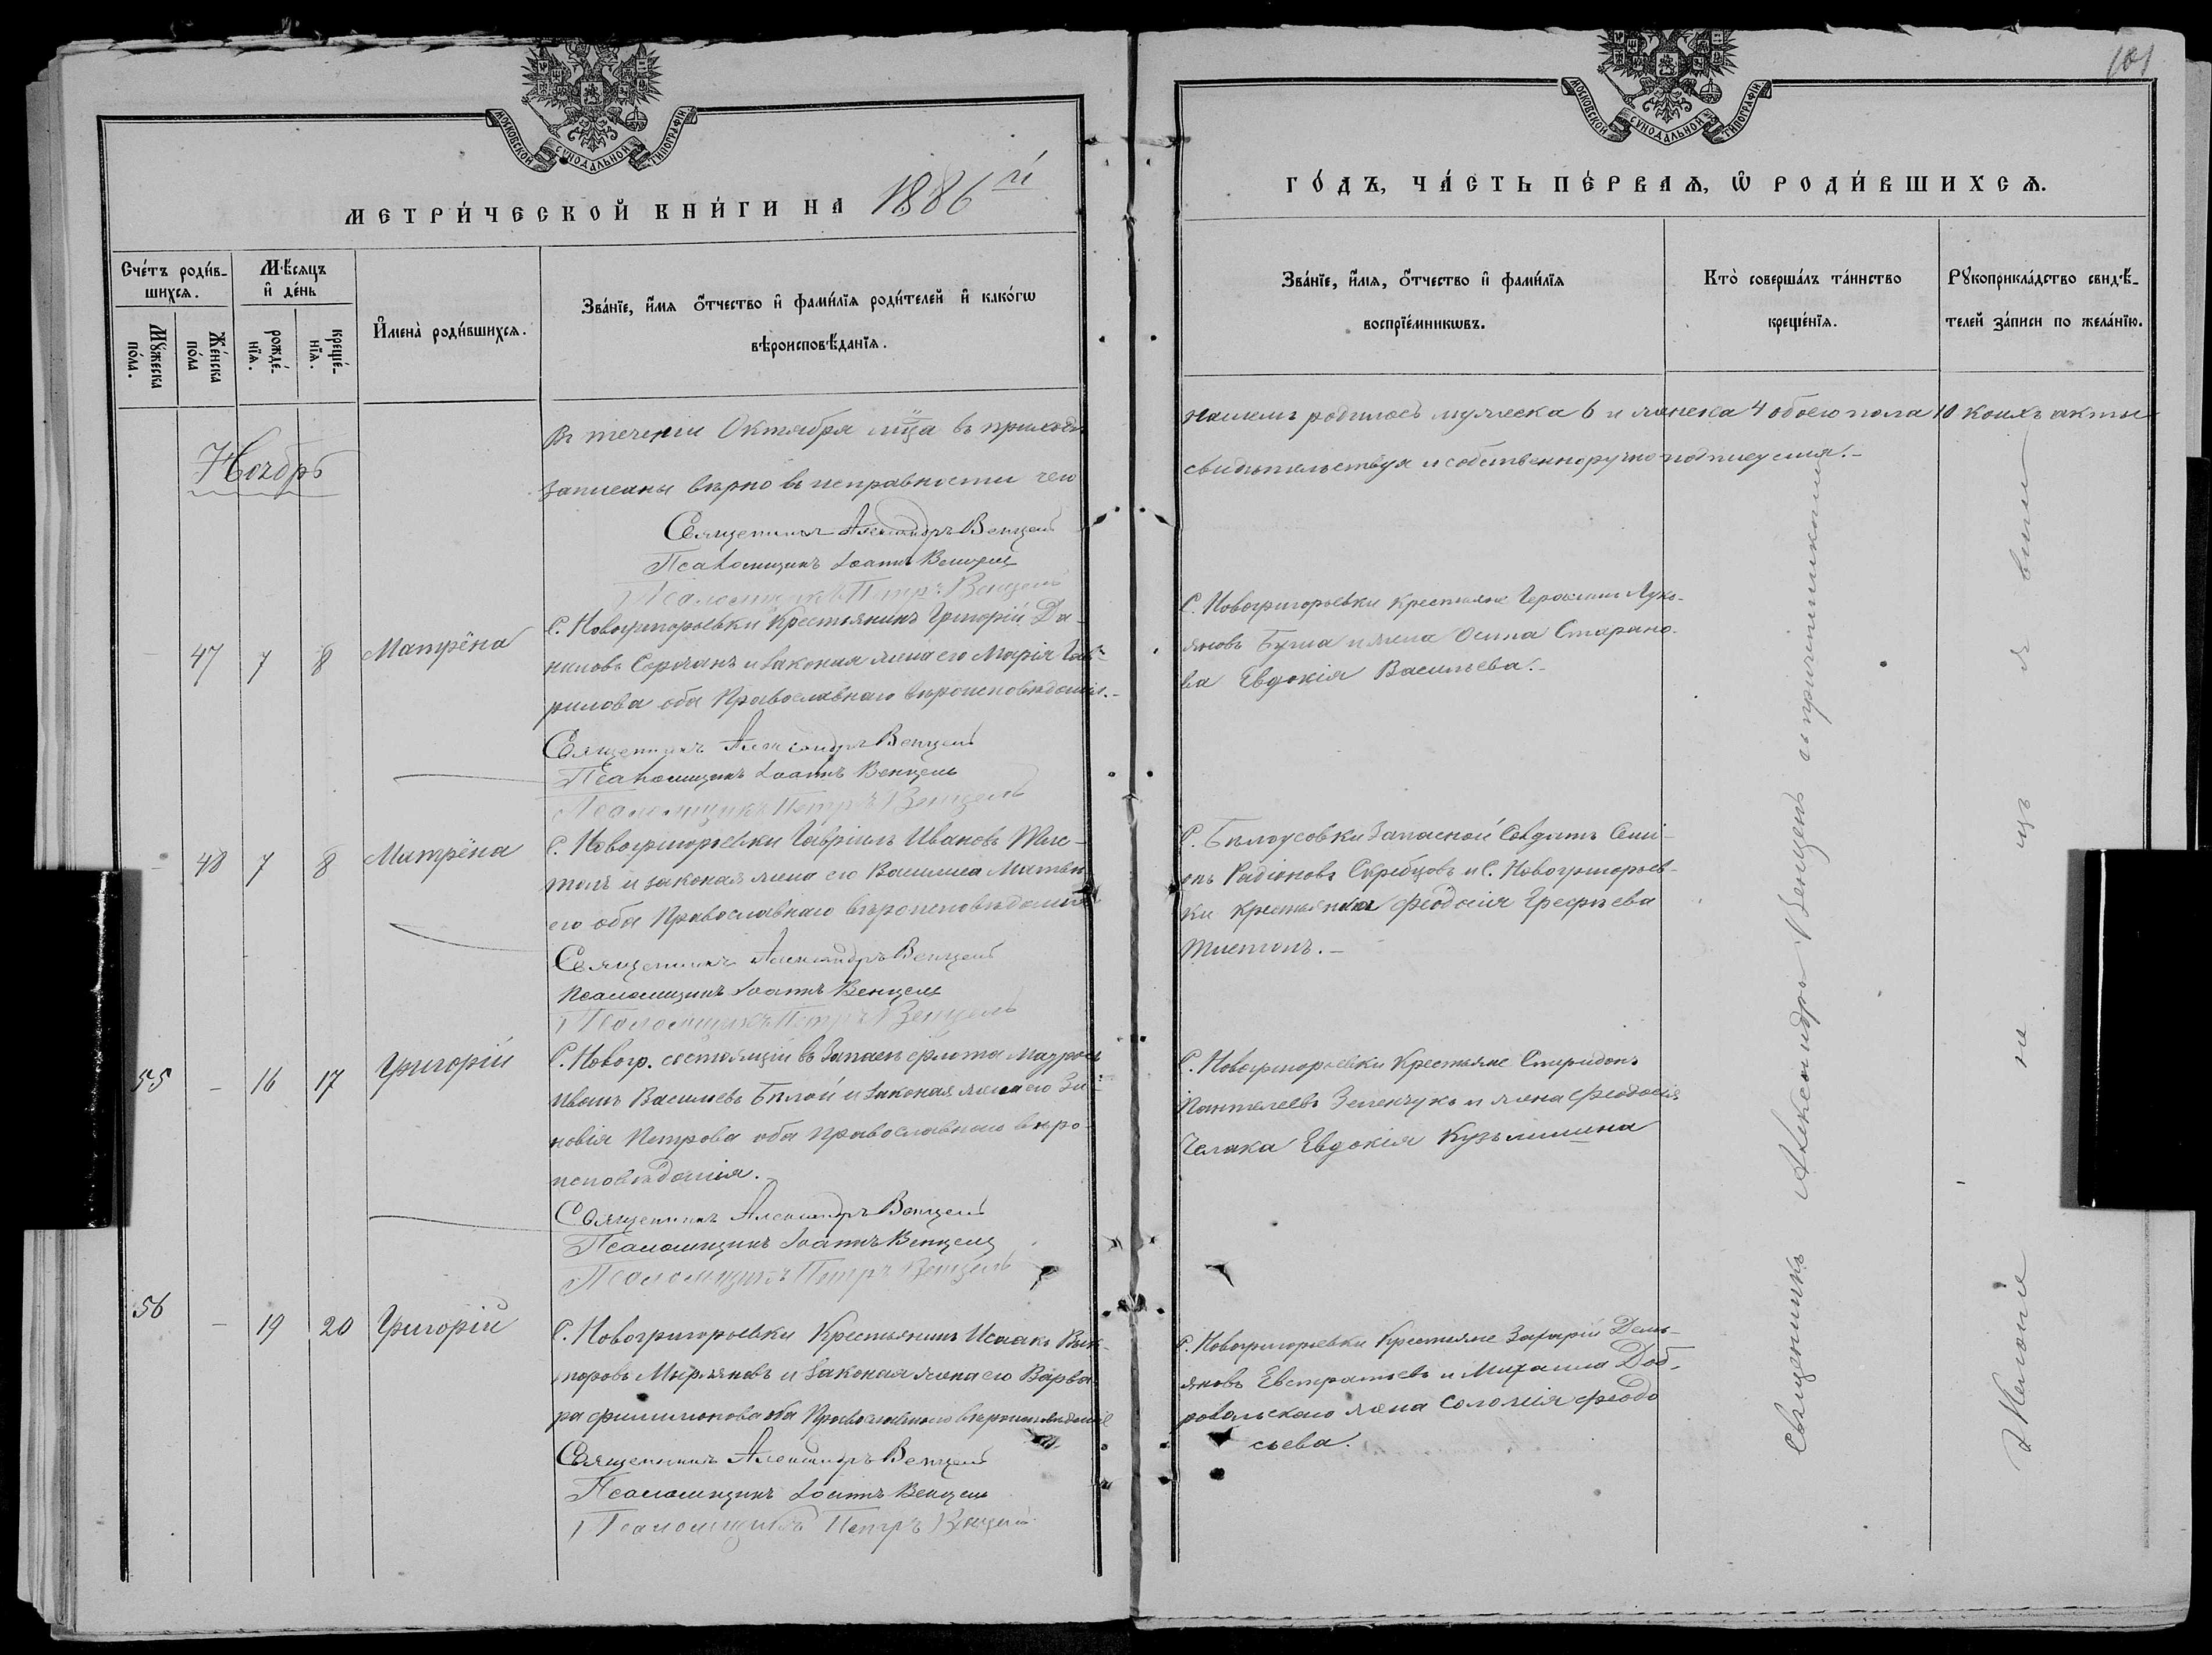 101
МОСКОВСКОЙ СѴНОДАЛЬНОЙ ТИПОГРАФІИ
МЕТРИ́ЧЕСКОЙ КНИ́ГИ НА 1886й
Сче́тъ роди́в-
шихсѧ.
Мѣ́сяцъ
и҆ де́нь
Мꙋ́жеска
по́ла.
Же́нска
по́ла
рожде́-
нїѧ.
креще́-
нїѧ.
И҆мена̀ роди́вшихсѧ.
Зва́нїе, и҆́мѧ ѻ҆́тчество и҆ фами́лїѧ роди́телей и҆ како́гѡ
вѣроисповѣ́данїѧ.
Ноябрь
Въ теченіи Октября мца въ приходѣ
записаны вѣрно въ исправности чего
Священникъ Александръ Венцель
Псаломщикъ Іоаннъ Венцель
Псаломщикъ Петръ Венцель
47 7 8 Матрёна
С. Новогригорьевки Крестьянинъ Григорій Да-
ниловъ и закония жена его Марія Гав-
рилова оба Православнаго вѣроисповѣданія.-
Священникъ Александръ Венцель
Псаломщикъ Іоаннъ Венцель
Псаломщикъ Петръ Венцель
- 48 7 8 Матрёна
С. Новогригорьевки Гавріилъ Ивановъ
и законая жена его Василиса
его оба Православнаго вѣроисповѣданія
Священникъ Александръ Венцель
Псаломщикъ Іоаннъ Венцель
Псаломщикъ Петръ Венцель
55 - 16 17 Григорій
С. Новогр. состоящій въ Запасѣ флота матросъ
Иванъ Васильевъ Бѣлой и законая жена его Зи-
новія Петрова оба православнаго вѣро-
исповѣданія.
Священникъ Александръ Венцель
Псаломщикъ Іоаннъ Венцель
Псаломщикъ Петръ Венцель
56 - 19 20 Григорій
С. Новогригорьевки Крестьянинъ Исаакъ Вик-
торовъ и законая жена его Варва-
ра Филимонова оба Православнаго вѣроисповѣданія
Священникъ Александръ Венцель
Псаломщикъ Іоаннъ Венцель
Псаломщикъ Петръ Венцель
МОСКОВСКОЙ СѴНОДАЛЬНОЙ ТИПОГРАФІИ
ГО́ДЪ, ЧА́СТЬ ПЕ́РВАѦ, Ѽ РОДИ́ВШИХСѦ.
Зва́нїе, и҆́мѧ, ѻ҆́тчество и҆ фами́лїѧ
воспрїе́мникѡвъ.
Кто̀ соверша́лъ та́инство
креще́нїѧ.
Рꙋкоприкла́дство свидѣ́-
телей за́писи по жела́нїю.
нашемъ родилось мужеска 6 и женска 4 обоего пола 10 коихъ акты
свидѣтельствуя и собственноручно подписуемся.-
С. Новогригорьевки крестьяне Герасимъ Лукь-
яновъ и жена Осипа Старано-
ва Евдокія Васильева.-
С. Бѣлоусовки Запасной Солдатъ Сем-
енъ Радіоновъ Скребцовъ и С. Новогригорьев-
ки Феодосія
С. Новогригорьевки Крестьяне Спиридонъ
Пантелеевъ Зеленчукъ и жена Феодосія
Челака Евдокія Кузьминина
С. Новогригорьевки Крестьяне Захарій Демь-
яновъ Евстратьевъ и Михаила Доб-
ровольскаго жена Соломія Феодо
сьева.
Священникъ Александръ Венцель съ причетниками